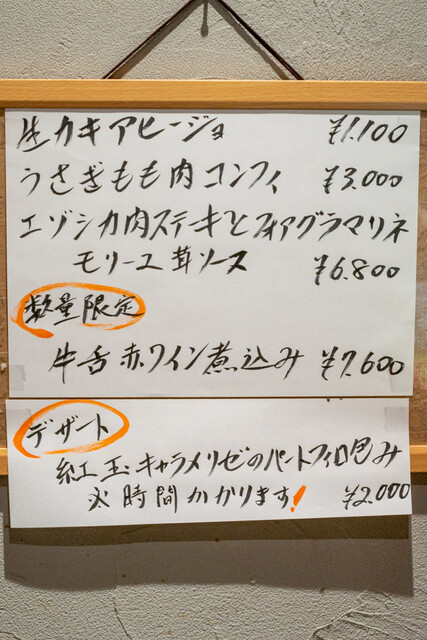 生カキアヒージョ ¥1.100
うさぎもも肉コンフィ ¥3.000
エゾシカ肉ステーキとフォアグラマリネ
モリーユ茸ソース ¥6.800
数量限定
牛舌赤ワイン煮込み ¥7.600
デザート
紅玉キャラメリゼのパートフィロ包み
※時間かかります! ¥2.000